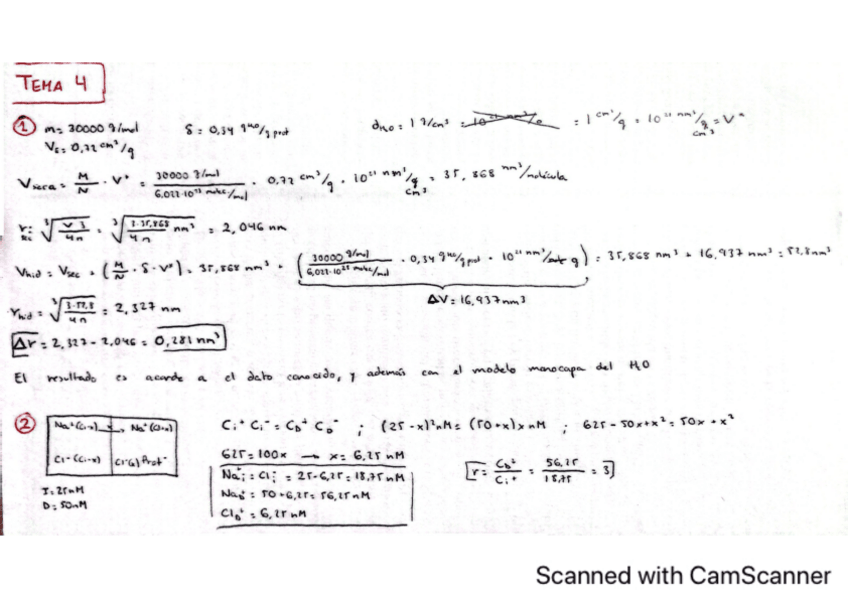 TEMA 4
① m= 30000 g/mol   δ = 0,34 gH₂O/g prot   dH₂O = 1 g/cm³ = = 1 cm³/g = 10²¹ nm³/g = V*
cm³
Vs= 0,72 cm³/g
Vseca = M/N · V* = 30000 g/mol / 6,022·10²³ molec/mol · 0,72 cm³/g · 10²¹ nm³/cm³ = 35,868 nm³/molécula
r = ∛(V 3/4π) = ∛(3·35,868/4π nm³) = 2,046 nm
Vhid = Vsec + (M/N · δ · V*) = 35,868 nm³ + (30000 g/mol / 6,022·10²³ molec/mol · 0,34 gH₂O/g prot · 10²¹ nm³/g) = 35,868 nm³ + 16,937 nm³ = 52,8 nm³
ΔV = 16,937 nm³
rhid = ∛(3·52,8/4π) = 2,327 nm
Δr = 2,327 - 2,046 = 0,281 nm³
El resultado es acorde a el dato conocido, y además con el modelo monocapa del H₂O
② Na⁺(Ci-x) Na⁺(D+x)   Ci⁺ Ci⁻ = CD⁺ CD⁻ ; (25-x)² nM = (50+x)x nM ; 625 - 50x + x² = 50x + x²
Cl⁻(Ci-x) Prot⁻   625 = 100x → x = 6,25 nM
Na⁺i = Cl⁻i = 25-6,25 = 18,75 nM   r = CD⁺/Ci⁺ = 56,25/18,75 = 3
I = 25nM   NaD⁺ = 50+6,25 = 56,25 nM
D = 50nM   ClD⁻ = 6,25 nM
Scanned with CamScanner